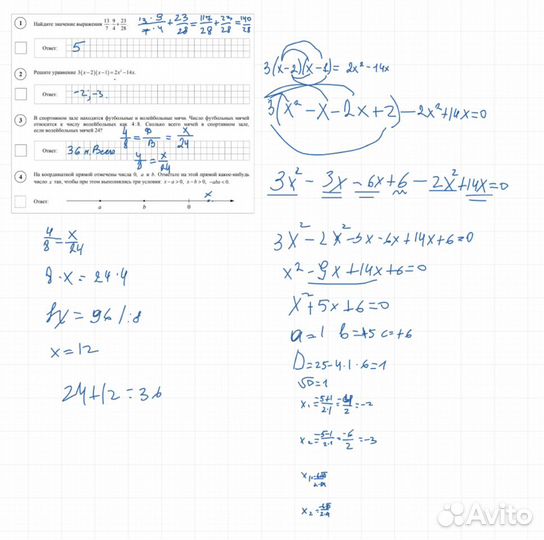 1 Найдите значение выражения 13/7 · 9/4 + 23/28. 13·9/7·4 + 23/28 = 117/28 + 23/28 = 140/28
Ответ: 5
2 Решите уравнение 3(x−2)(x−1)=2x²−14x.
Ответ: -2; -3.
3 В спортивном зале находятся футбольные и волейбольные мячи. Число футбольных мячей
относится к числу волейбольных как 4:8. Сколько всего мячей в спортивном зале,
если волейбольных мячей 24? 4/8 = Ф/В = x/24
Ответ: 36 м. Всего 4/8 = x/24
4 На координатной прямой отмечены числа 0, a и b. Отметьте на этой прямой какое-нибудь
число x так, чтобы при этом выполнялись три условия: x−a>0, x−b>0, −abx<0.
Ответ: x
a b 0
4/8 = x/24
8·x = 24·4
8x = 96 / :8
x = 12
24+12 = 36
3(x-2)(x-1) = 2x²-14x
3(x²-x-2x+2)-2x²+14x=0
3x²-3x-6x+6-2x²+14x=0
3x²-2x²-3x-6x+14x+6=0
x²-9x+14x+6=0
x²+5x+6=0
a=1 b=+5 c=+6
D=25-4·1·6=1
√D=1
x₁=-5+1/2·1=-4/2=-2
x₂=-5-1/2·1=-6/2=-3
Avito